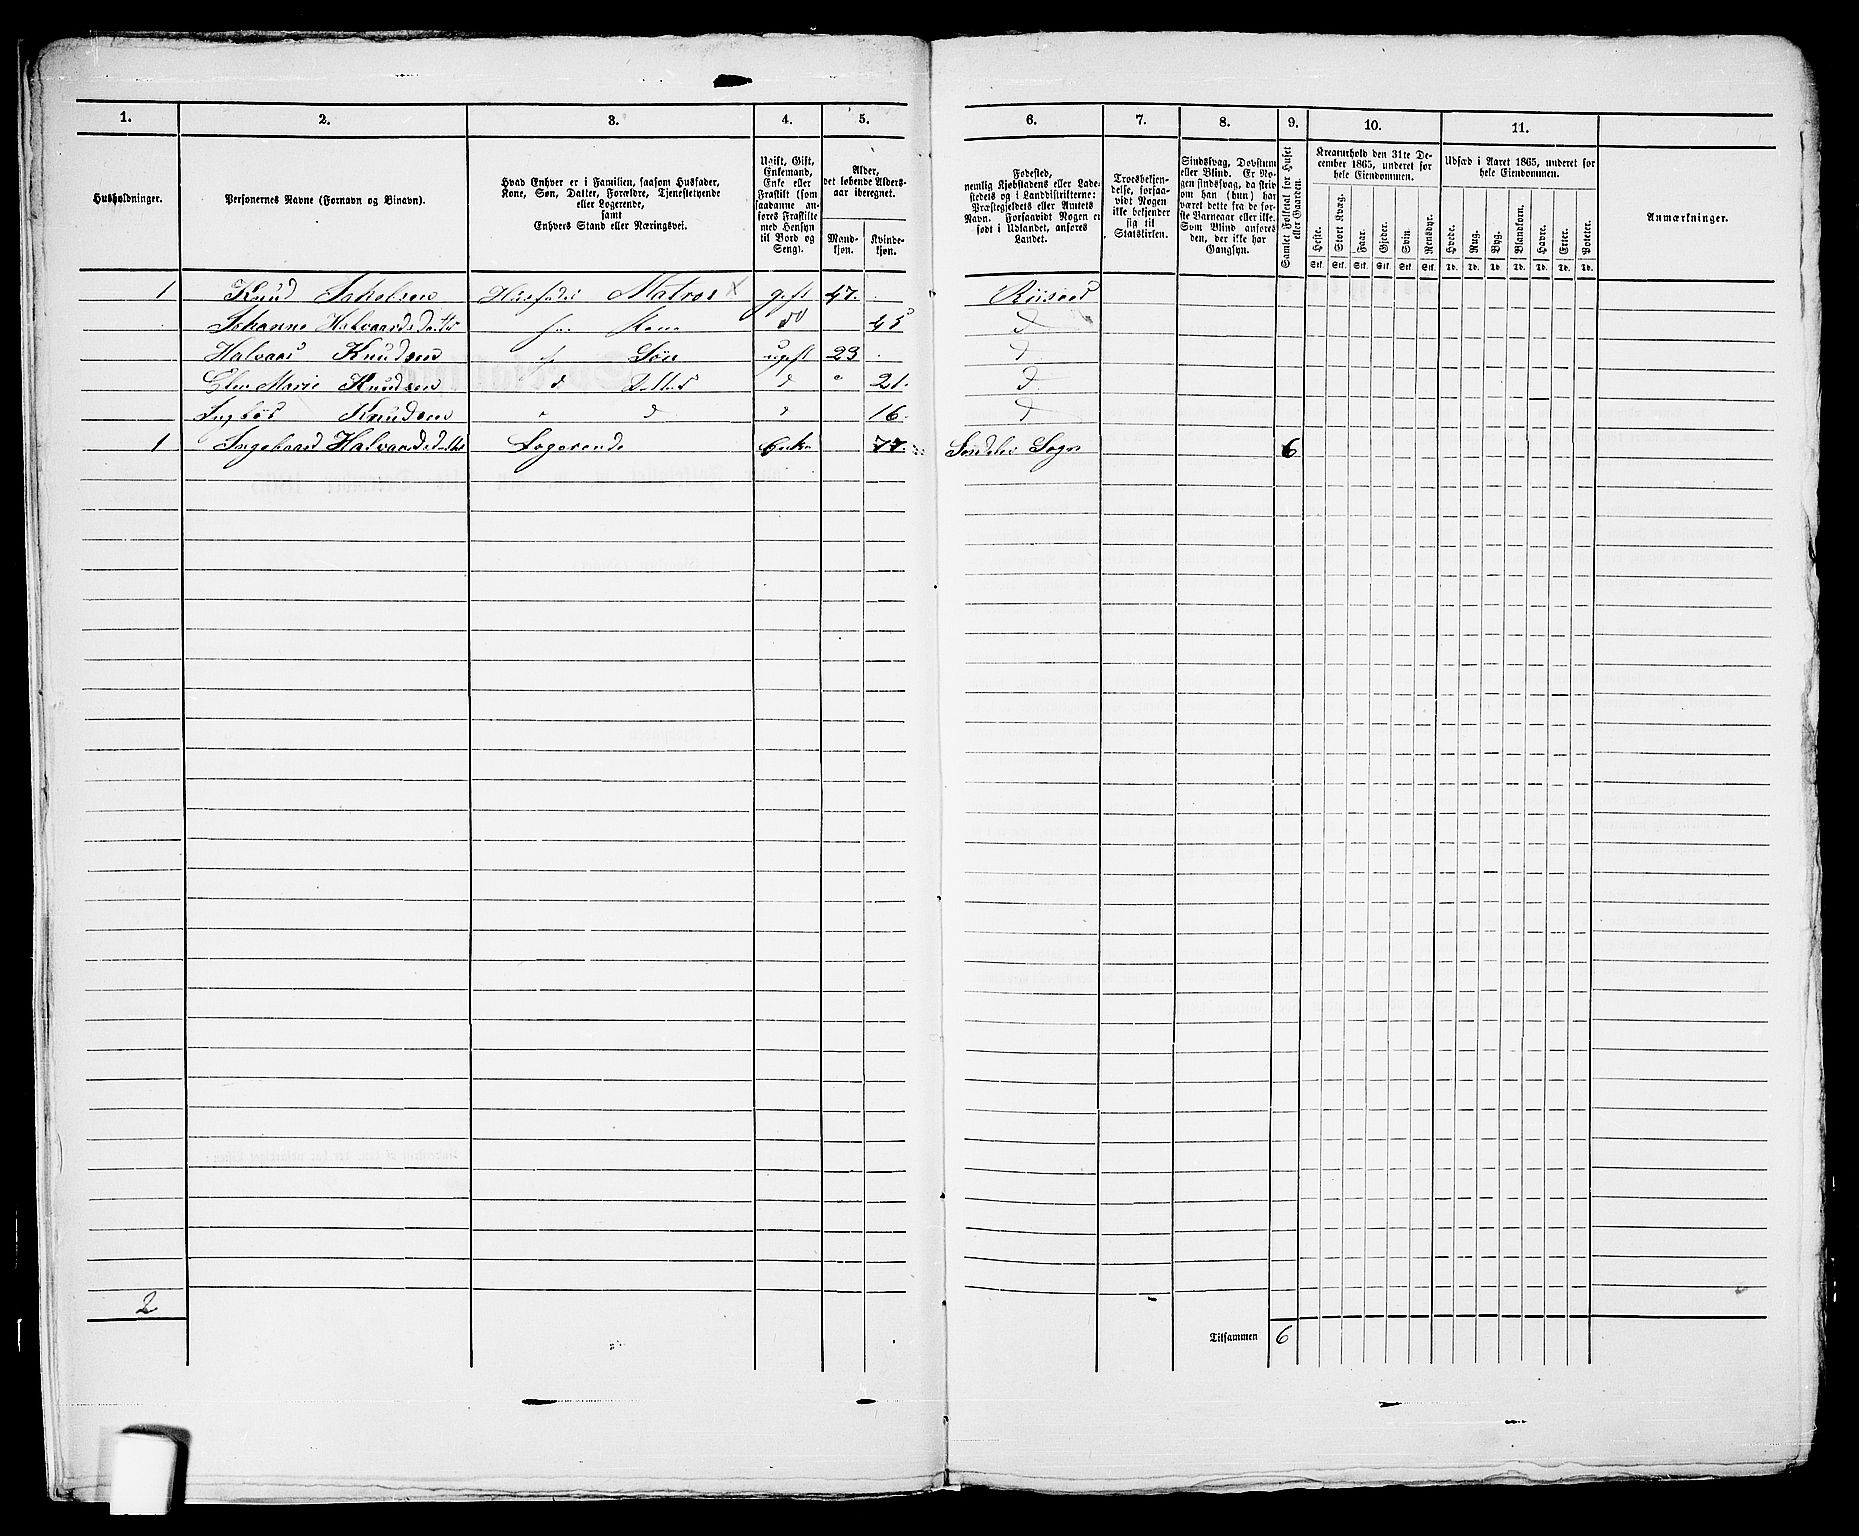 1. 2. 3. 4. 5. 6. 7. 8. 9. 10. 11.
Husholdninger.
Personernes Navne (Fornavn og Binavn).
Hvad Enhver er i Familien, saasom Husfader, Kone, Søn, Datter, Forældre, Tjenestetyende eller Logerende, samt Enhvers Stand eller Næringsvei.
Ugift, Gift, Enkemand, Enke eller Fraskilt (som saadanne anføres Fraskilte med Hensyn til Bord og Seng).
Alder, det løbende Alders-aar iberegnet.
Mandkjøn. Kvindekjøn.
Fødested, nemlig Kjøbstadens eller Ladestedets og i Landdistrikterne: Præstegjeldets eller Amtets Navn. Forsaavidt Nogen er født i Udlandet, anføres Landet.
Troesbekjendelse, forsaavidt Nogen ikke bekjender sig til Statskirken.
Sindssvag, Døvstum eller Blind. Er Nogen sindssvag, da skrives om han (hun) har været dette fra de første Barneaar eller ikke. Som Blind anføres den, der ikke har Gangsyn.
Samlet Folketal for Huset eller Gaarden.
Kreaturhold den 31te December 1865, underet for hele Eiendommen.
Heste. Stort Kvæg. Faar. Gjeder. Svin. Rensdyr.
Stk. Stk. Stk. Stk. Stk. Stk.
Udsæd i Aaret 1865, underet for hele Eiendommen.
Hvede. Rug. Byg. Blandkorn. Havre. Erter. Poteter.
Td. Td. Td. Td. Td. Td. Td.
Anmærkninger.
1 Knud Husfader Matros x gift 47. Riisøer
Johanne Halvaardsdatter Kone do 45 d
Halvaar Knudsen Søn ugift 23 d
Elen Marie Knudsen d Datter d " 21. d
Ingbør Knudsen " d d 16. d
1 Ingeboor Halvaardsdatter Logerende Enke 77. Søndeler Sogn 6
2
Tilsammen 6